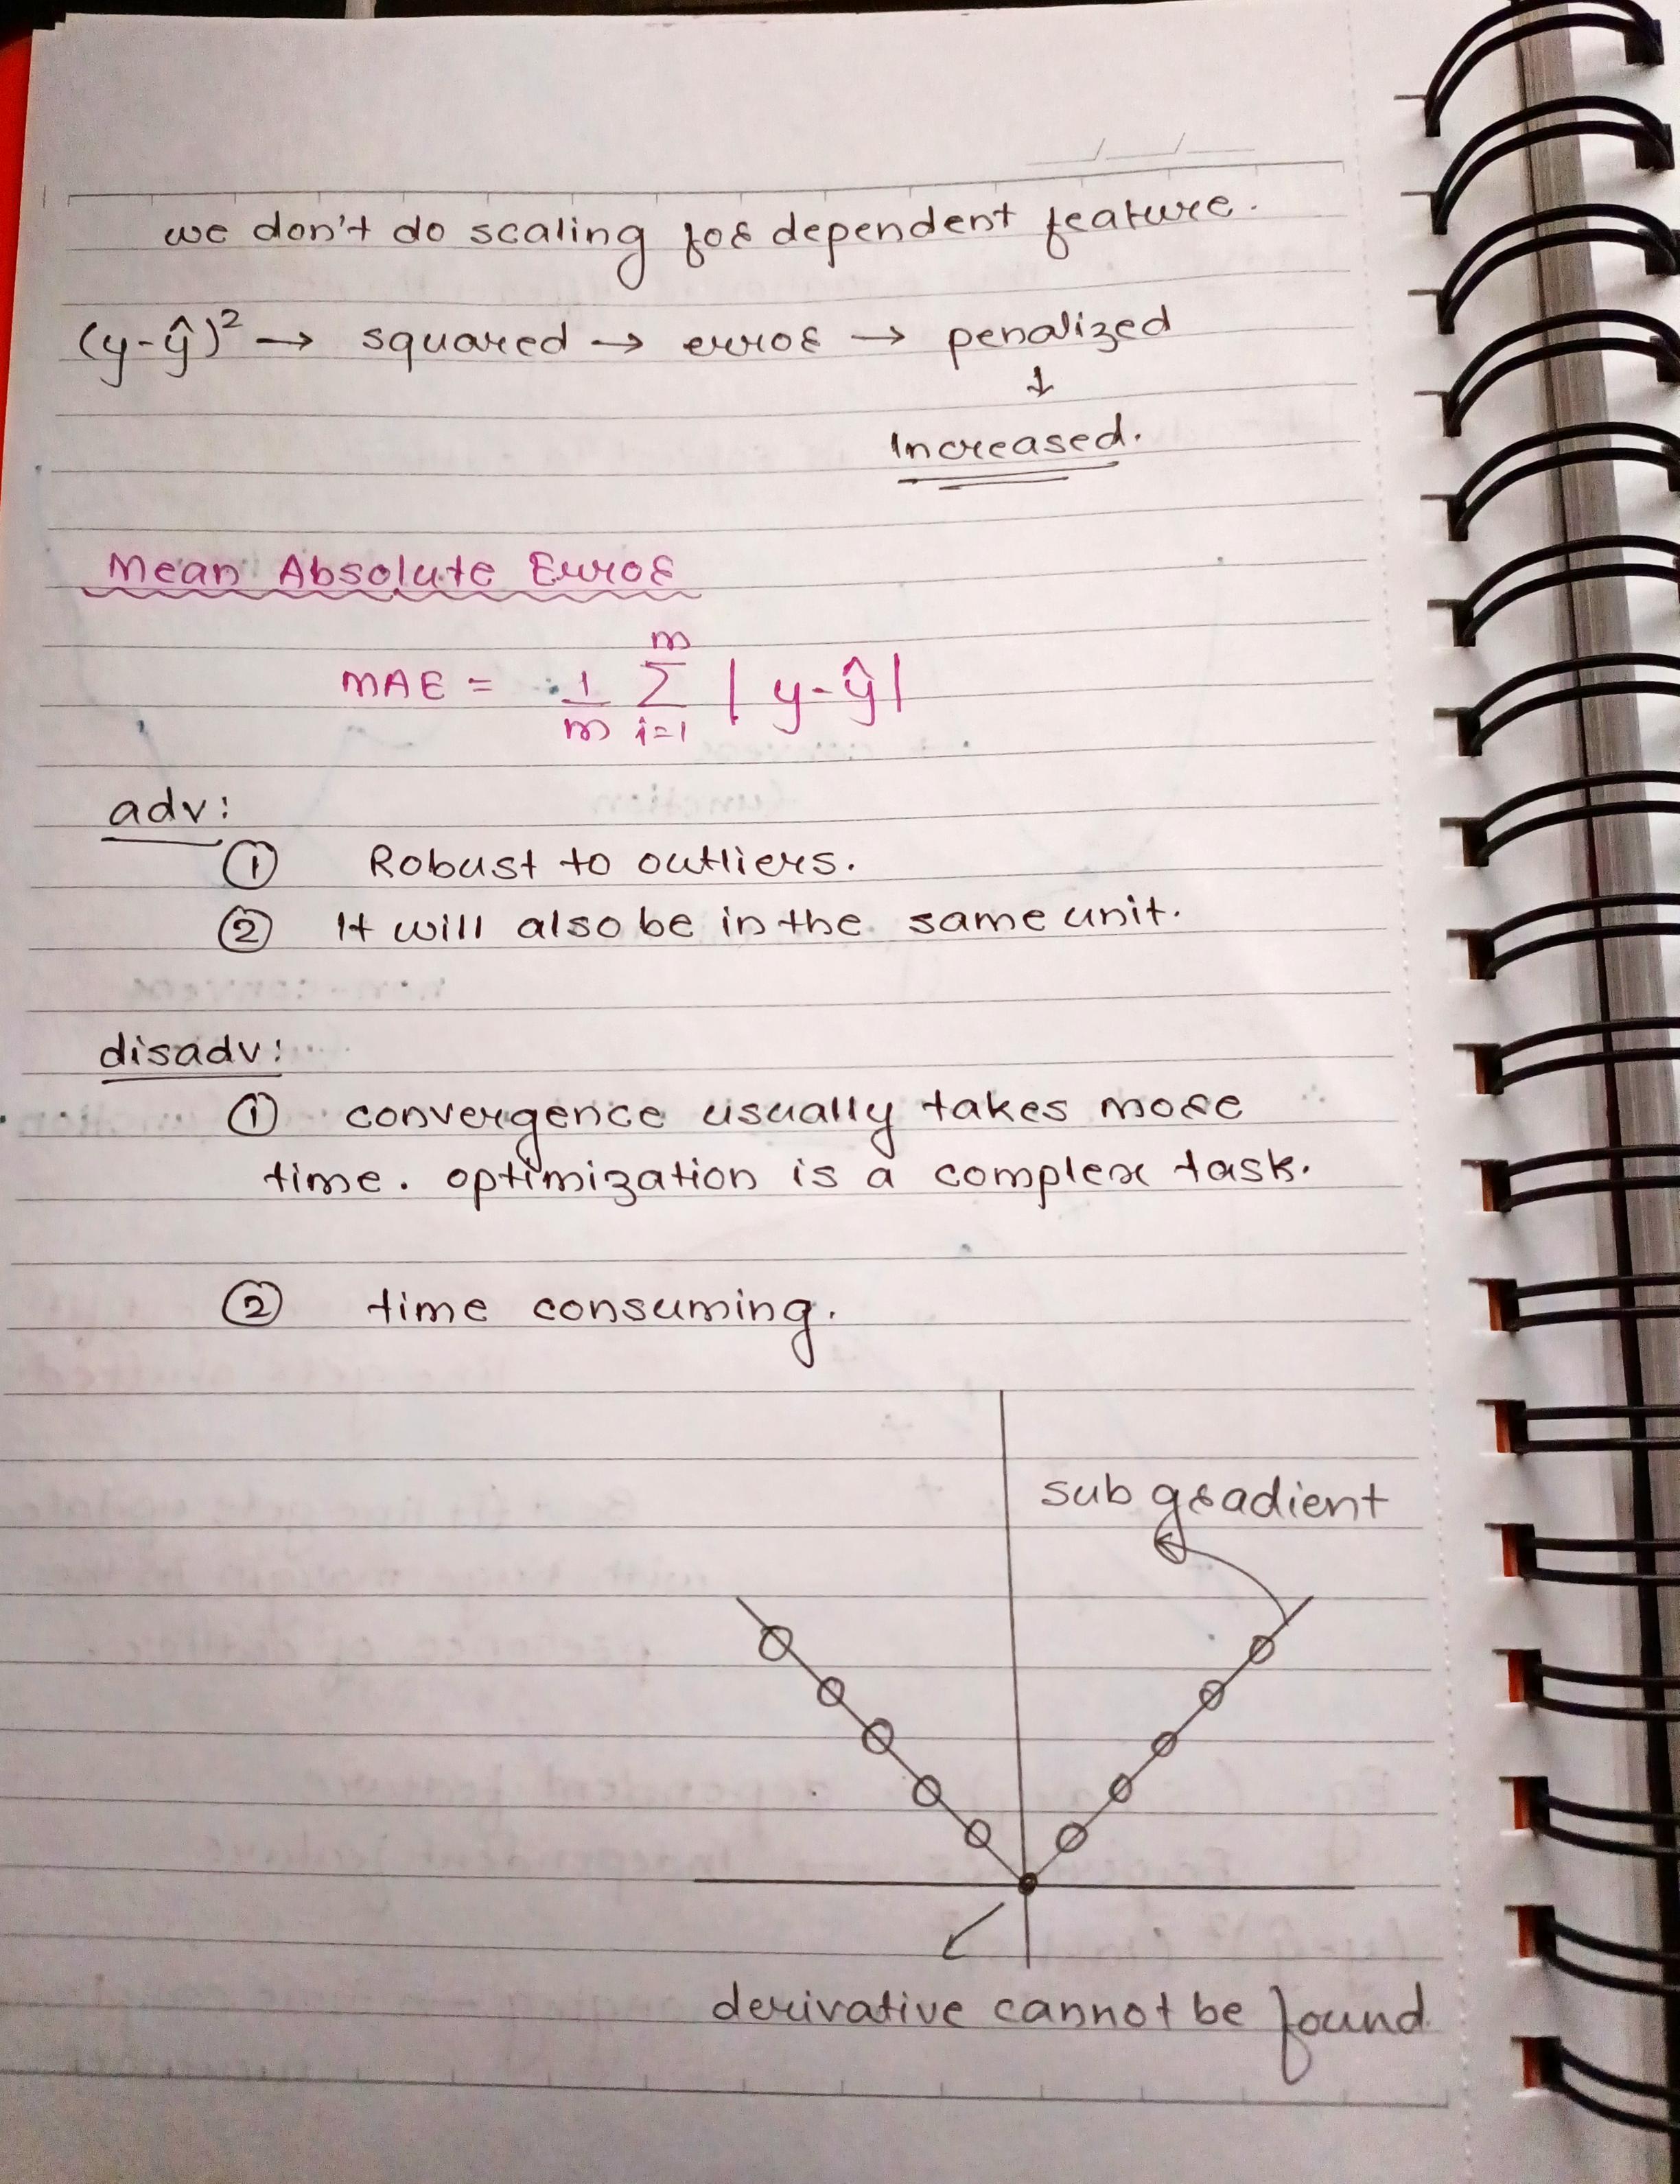 we don't do scaling for dependent feature.
(y-ŷ)² → squared → error → penalized
↓
Increased.
Mean Absolute Error
MAE = 1/m Σ_{i=1}^{m} |y-ŷ|
adv:
① Robust to outliers.
② It will also be in the same unit.
disadv:
① convergence usually takes more
time. optimization is a complex task.
② time consuming.
sub gradient
derivative cannot be found